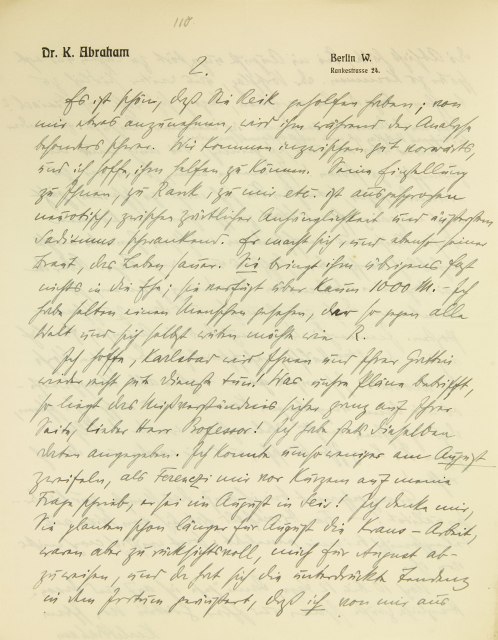 110
Dr. K. Abraham
Berlin W.
Rankestrasse 24.
2.
Es ist schön, daß Sie Reik geholfen haben; von
mir etwas anzunehmen, wird ihm während der Analyse
besonders schwer. Wir kommen inzwischen gut vorwärts,
und ich hoffe, ihm helfen zu können. Seine Einstellung
zu Ihnen, zu Rank, zu mir etc. ist ausgesprochen
neurotisch, zwischen zärtlicher Anhänglichkeit und äußerstem
Sadismus schwankend. Er macht sich, und ebenso seiner
Braut, das Leben sauer. Sie bringt ihm übrigens fast
nichts in die Ehe; sie verfügt über kaum 1000 M. – Ich
habe selten einen Menschen gesehen, der so gegen alle
Welt und sich selbst wüten möchte wie R.
Ich hoffe, Karlsbad wird Ihnen und Ihrer Gattin
wieder recht gute Dienste tun! Was unsre Pläne betrifft,
so liegt das Mißverständnis sicher ganz auf Ihrer
Seite, lieber Herr Professor! Ich habe stets dieselben
Daten angegeben. Ich konnte umsoweniger am August
zweifeln, als Ferenczi mir vor Kurzem auf meine
Frage schrieb, er sei im August in Seis! Ich denke mir,
Sie planten schon länger für August die Kraus-Arbeit,
waren aber zu rücksichtsvoll, mich für August ab-
zuweisen, und da hat sich die unterdrückte Tendenz
in dem Irrtum geäußert, daß ich von mir aus